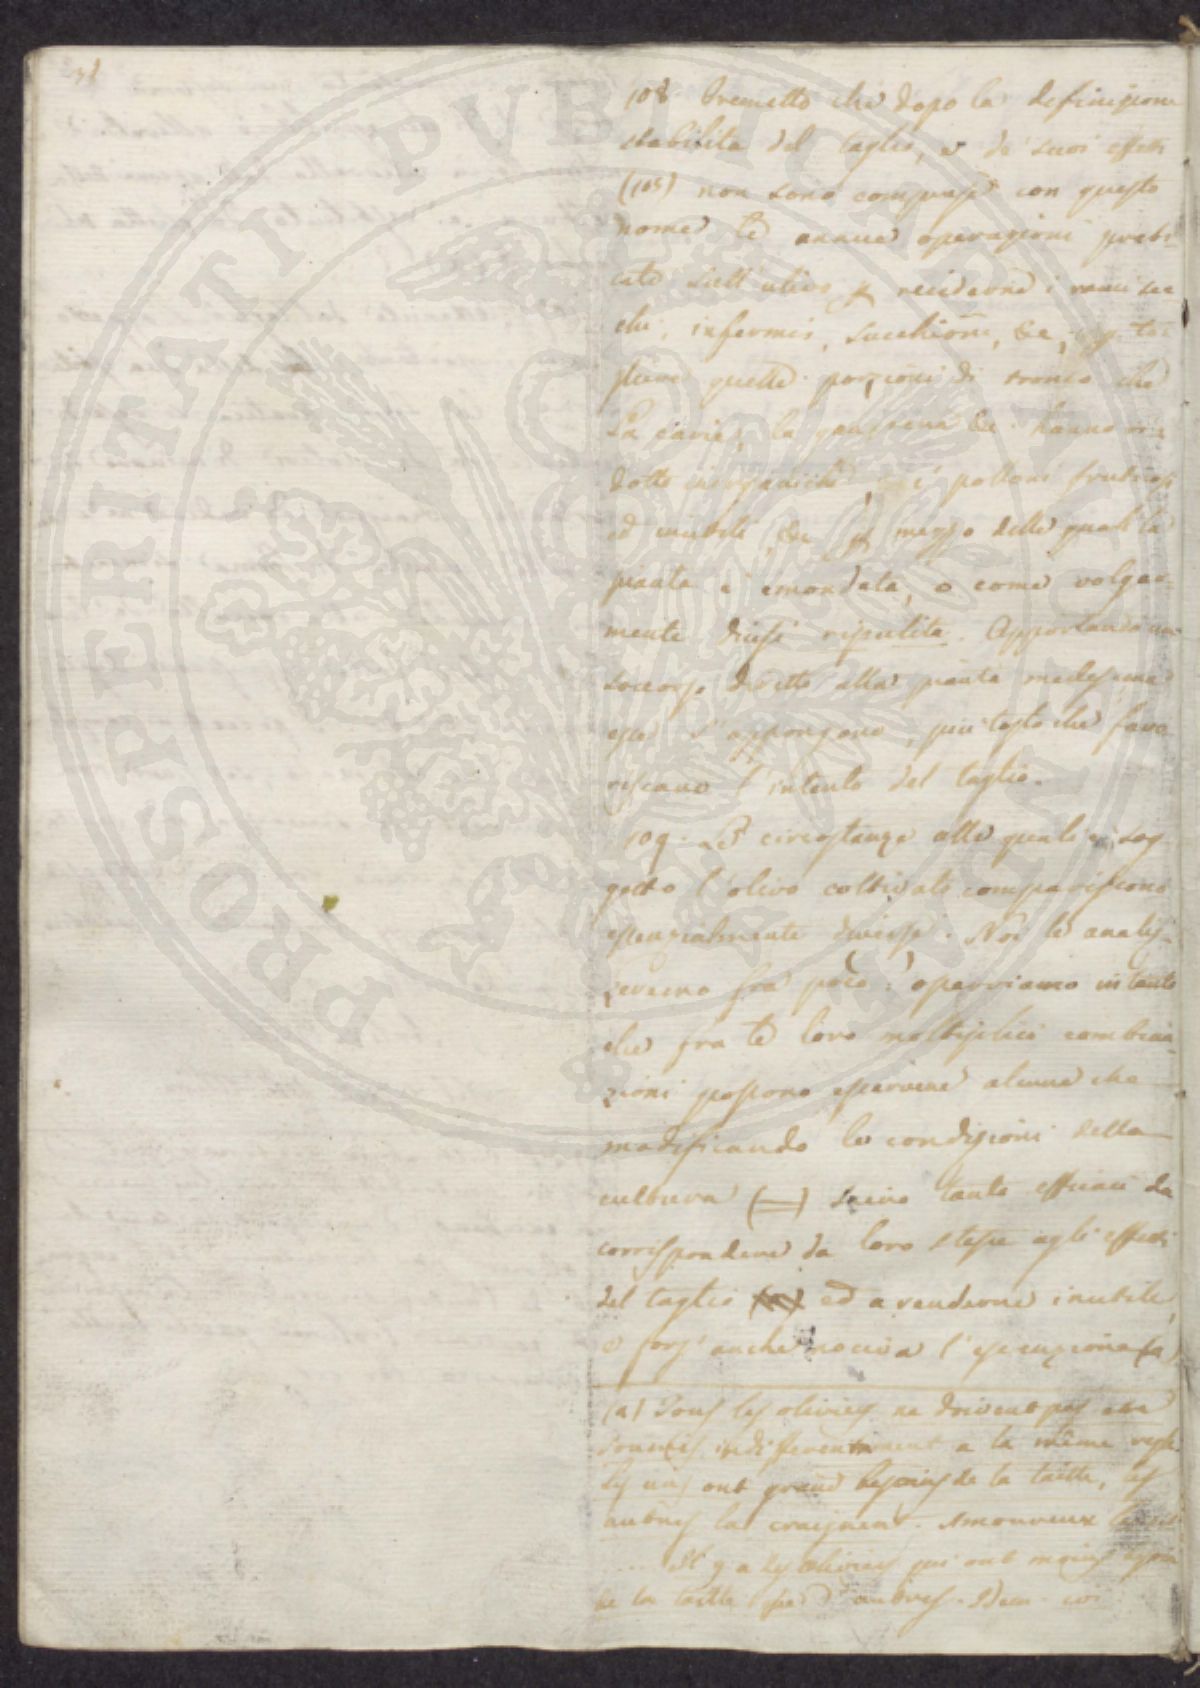 108. Premetto che dopo la definizione
stabilita del taglio, e de' suoi effetti
(105) non sono comprese con questo
nome le annue operazioni prati-
cate sull'ulivo p recidere i rami sec
chi, infermi, succhioni, &c,
quelle porzioni di tronco che
la carie, la gangrena &c. hanno ri-
dotte inorganiche, i polloni
ed inutili, &c p mezzo delle quali la
pianta è emondata, o come volgar-
mente dicesi ripulita. Apportando un
soccorso diretto alla pianta medesima
esse s'oppongono, piuttosto che favo
riscano l'intento del taglio.
109. Le circostanze alle quali è sog-
getto l'olivo coltivato compariscono
essenzialmente diverse. Noi le analiz-
zeremo fra poco: osserviamo intanto
che fra le loro moltiplici combina-
zioni possono esservene alcune che
modificando le condizioni della
cultura (—) sieno tanto efficaci da
corrispondere da loro stesse agli effetti
del taglio ed a renderne inutile,
e fors'anche nociva l'esecuzione (a)
(a) Tous les oliviers ne doivent pas etre
soumis indifferemment a la même regle
les uns ont grand besoin de la taille, les
autres la craignent. Amoureux
.... Il y a des oliviers qui ont moins
de la taille que d'autres. Idem.
PUBLICAE PROSPERITATI